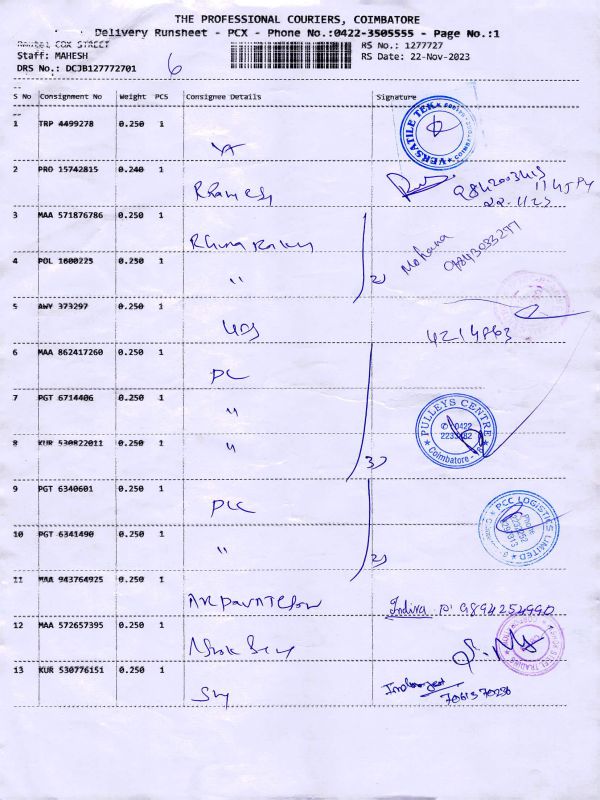 THE PROFESSIONAL COURIERS, COIMBATORE
Delivery Runsheet - PCX - Phone No.:0422-3505555 - Page No.:1
Route: COX STREET
RS No.: 1277727
Staff: MAHESH
RS Date: 22-Nov-2023
DRS No.: DCJB127772701
6
S No Consignment No Weight PCS Consignee Details Signature
1 TRP 4499278 0.250 1
VERSATILE TEK
2 PRO 15742815 0.240 1
R Ramesh
3 MAA 571876786 0.250 1
Mohana
9843083297
4 POL 1600225 0.250 1 "
2)
5 AWY 373297 0.250 1
4214863
6 MAA 862417260 0.250 1 PC
7 PGT 6714406 0.250 1 "
PULLEYS CENTRE
Coimbatore
8 KUR 530822011 0.250 1 "
3)
9 PGT 6340601 0.250 1
PCC LOGISTICS LIMITED
10 PGT 6341490 0.250 1 "
2)
11 MAA 943764925 0.250 1
Indira 9894254990
12 MAA 572657395 0.250 1
13 KUR 530776151 0.250 1
7061370256